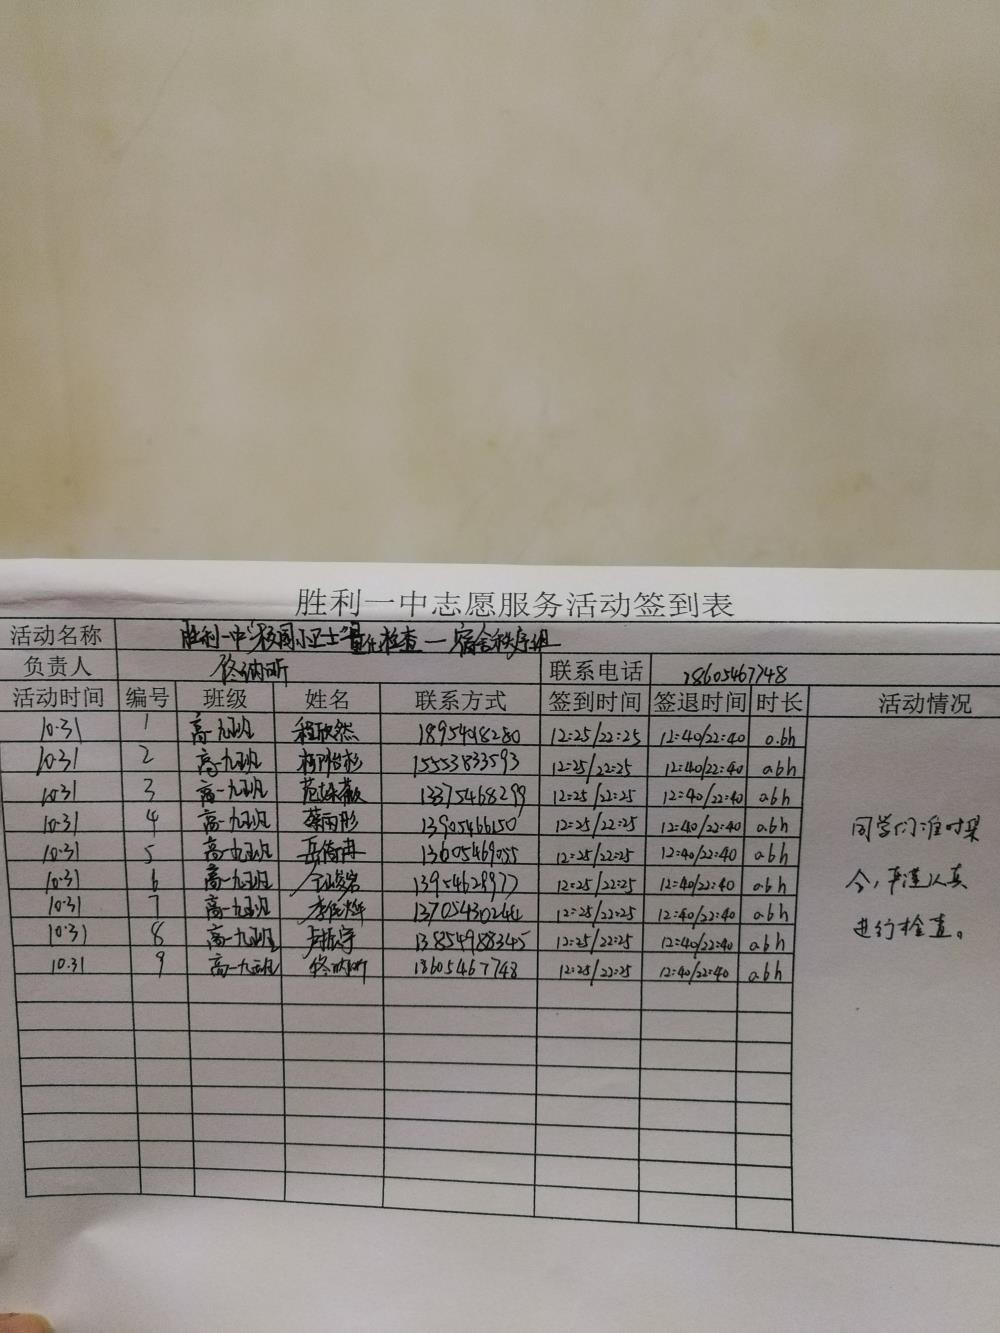 胜利一中志愿服务活动签到表
活动名称 胜利一中"校园小卫士"量化检查一宿舍秩序组
负责人 联系电话 18605467748
活动时间 编号 班级 姓名 联系方式 签到时间 签退时间 时长 活动情况
10.31 1 高一九班 程欣然 18954018280 12:25/22:25 12:40/22:40 0.6h
10.31 2 高一九班 15553833593 12:25/22:25 12:40/22:40 0.6h
10.31 3 高一九班 13375468299 12:25/22:25 12:40/22:40 0.6h
10.31 4 高一九班 蔡雨彤 13905466150 12:25/22:25 12:40/22:40 0.6h
10.31 5 高一九班 岳倚冉 13605469055 12:25/22:25 12:40/22:40 0.6h
10.31 6 高一九班 13954628977 12:25/22:25 12:40/22:40 0.6h
10.31 7 高一九班 12:25/22:25 12:40/22:40 0.6h
10.31 8 高一九班 卢振宇 13854988345 12:25/22:25 12:40/22:40 0.6h
10.31 9 高一九班 18605467748 12:25/22:25 12:40/22:40 0.6h
同学们准时集
合,严谨认真
进行检查。